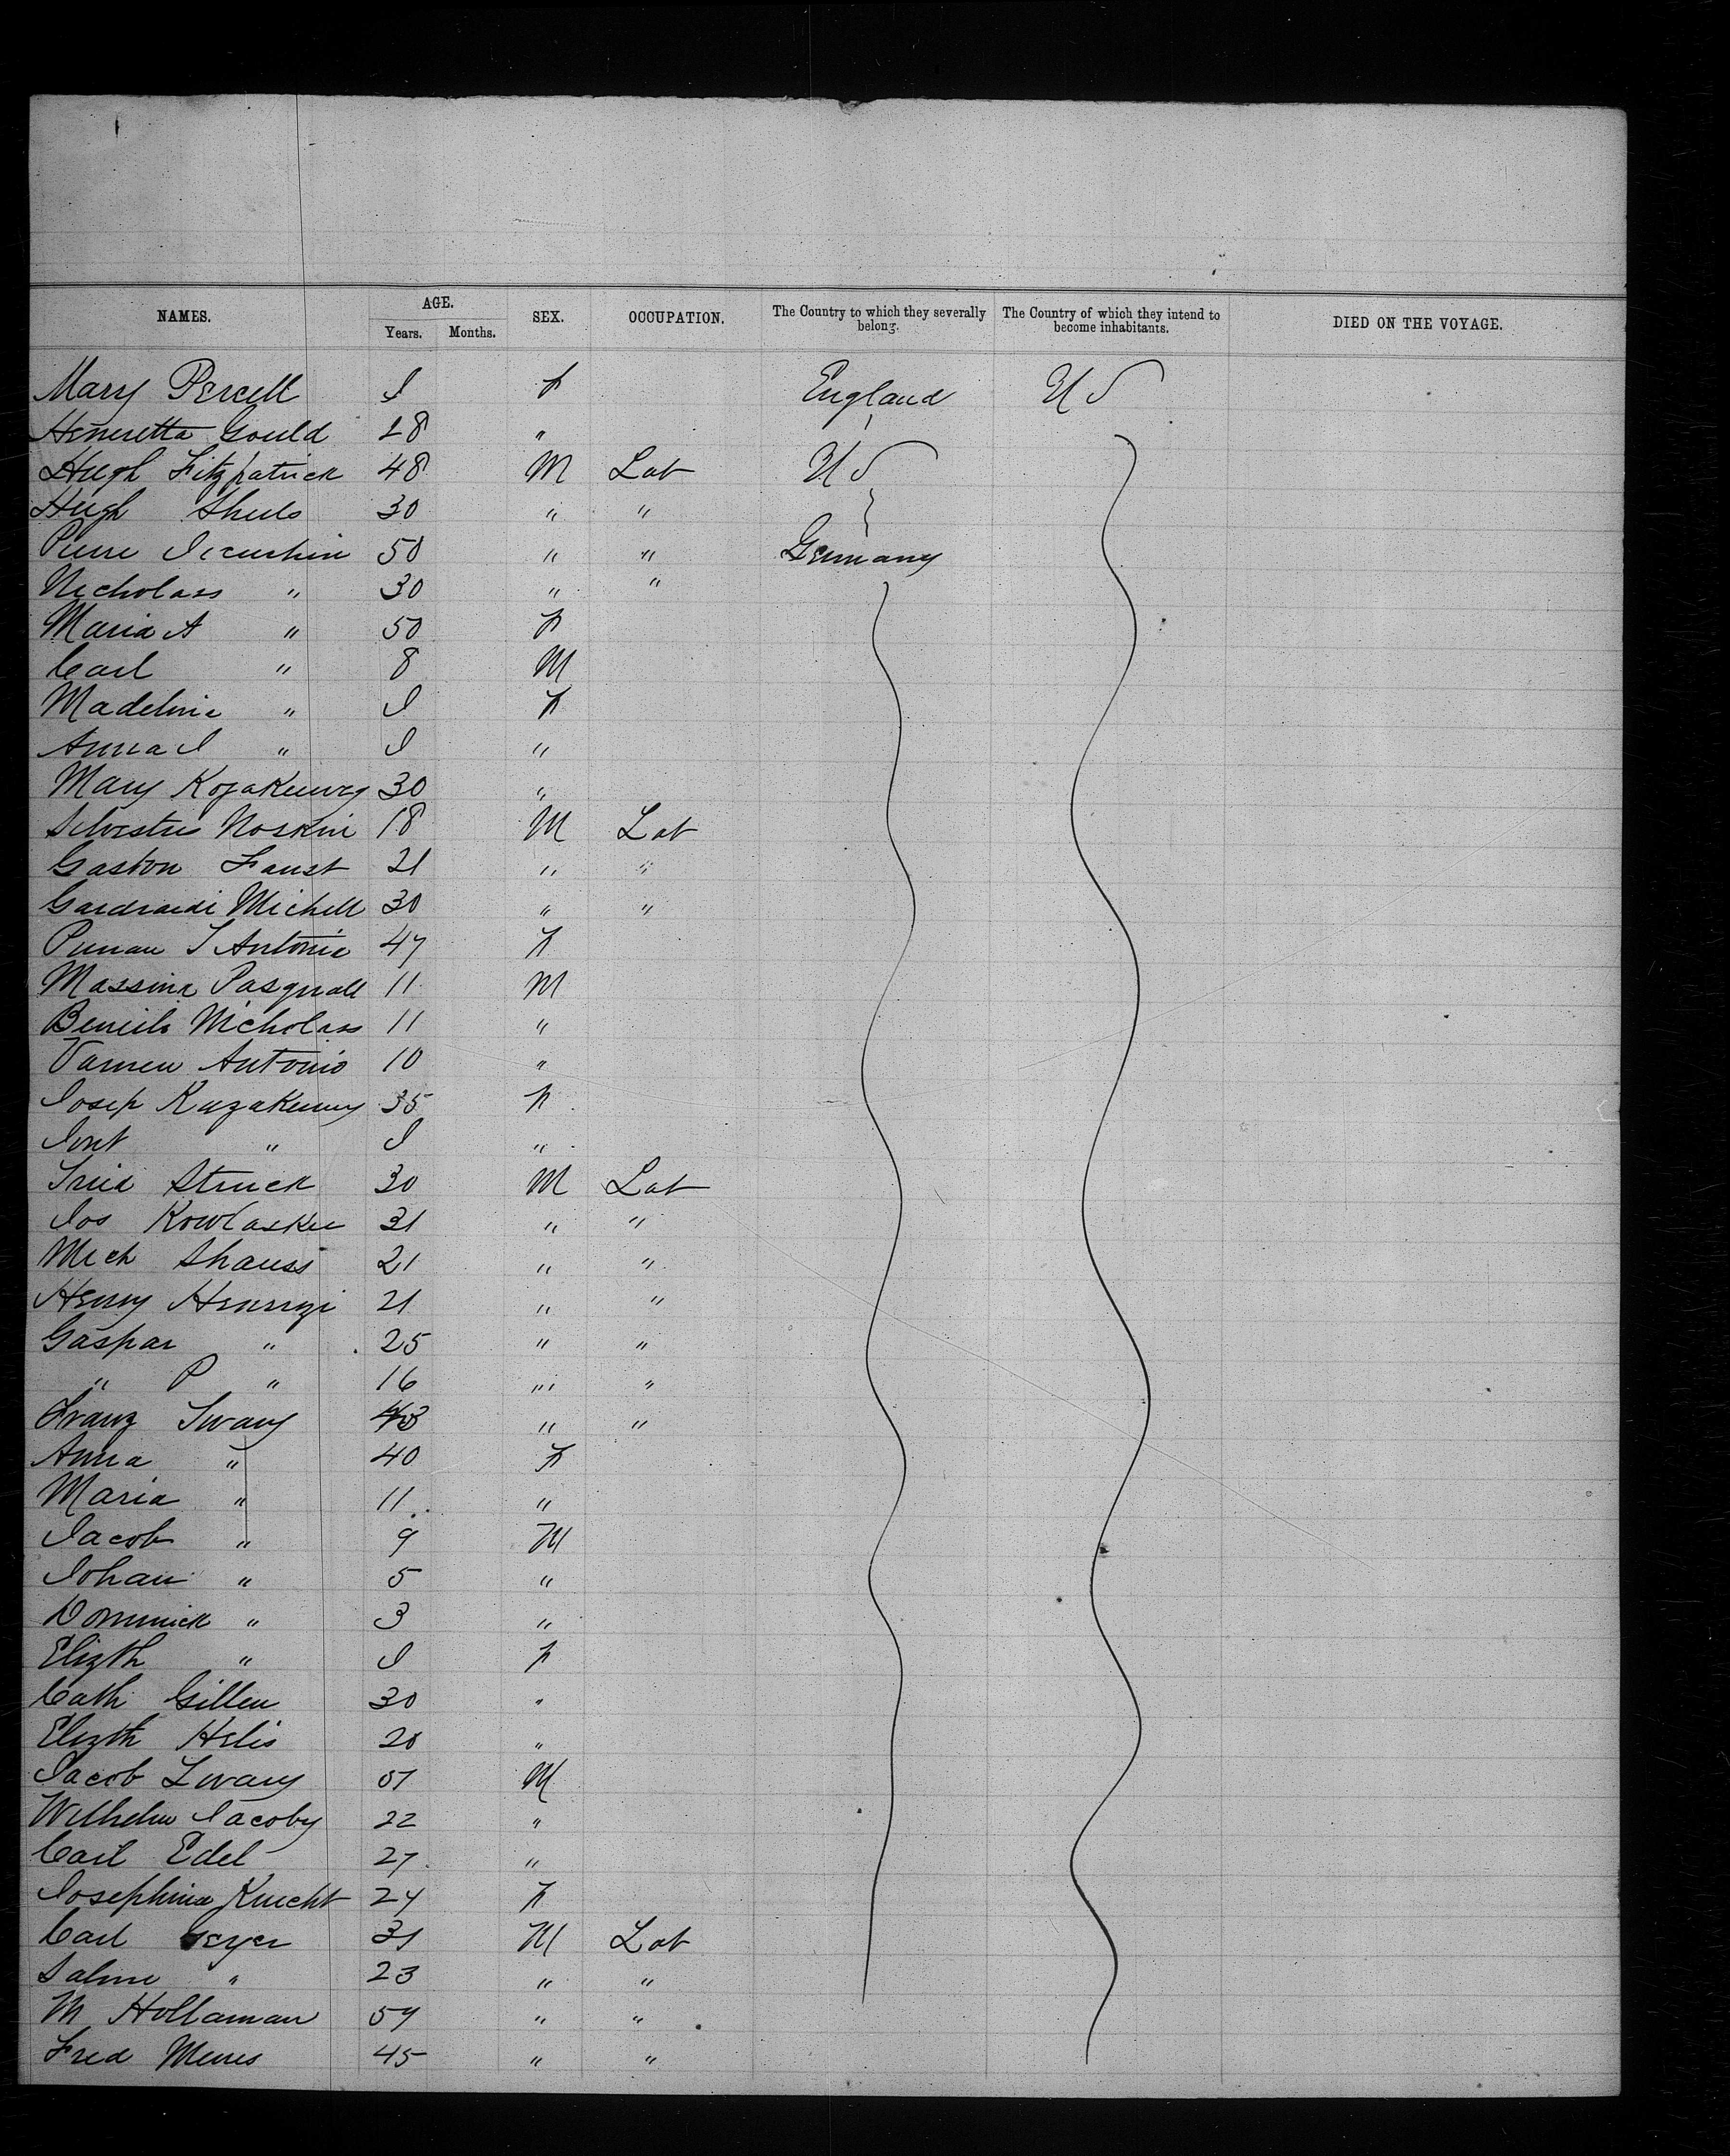 NAMES. AGE. Years. Months. SEX. OCCUPATION. The Country to which they severally belong. The Country of which they intend to become inhabitants. DIED ON THE VOYAGE.
Mary Percell I F England U S
Henretta Gould 28 "
Hugh Fitzpatrick 48 M Lab U S
Hugh Sheels 30 " "
Pierre 50 " " Germany
Nicholass " 30 " "
Maria A " 50 F
Carl " 8 M
Madeline " I F
Anna I " I "
Mary 30 "
Silvestris Noskin 18 M Lab
Gaston Faust 21 " "
Michell 30 " "
Antonia 47 F
Massina Pasquall 11 M
Nicholass 11 "
Antonio 10 "
Josep 35 F
" I "
Fried Struck 30 M Lab
Jos Kowlaskie 31 " "
Mich Shauss 21 " "
Henry 21 " "
Gaspar " 25 " "
" P " 16 " "
Franz 43 " "
Anna " 40 F
Maria " 11 "
Jacob " 9 M
Johan " 5 "
Dominick " 3 "
Elizth " I F
Cath Gillen 30 "
Elizth Helis 20 "
Jacob 57 M
Wilhelm Jacoby 22 "
Carl Edel 27 "
Josephina Knecht 24 F
Carl Geyer 31 M Lab
" 23 " "
M Hollaman 57 " "
Fred 45 " "